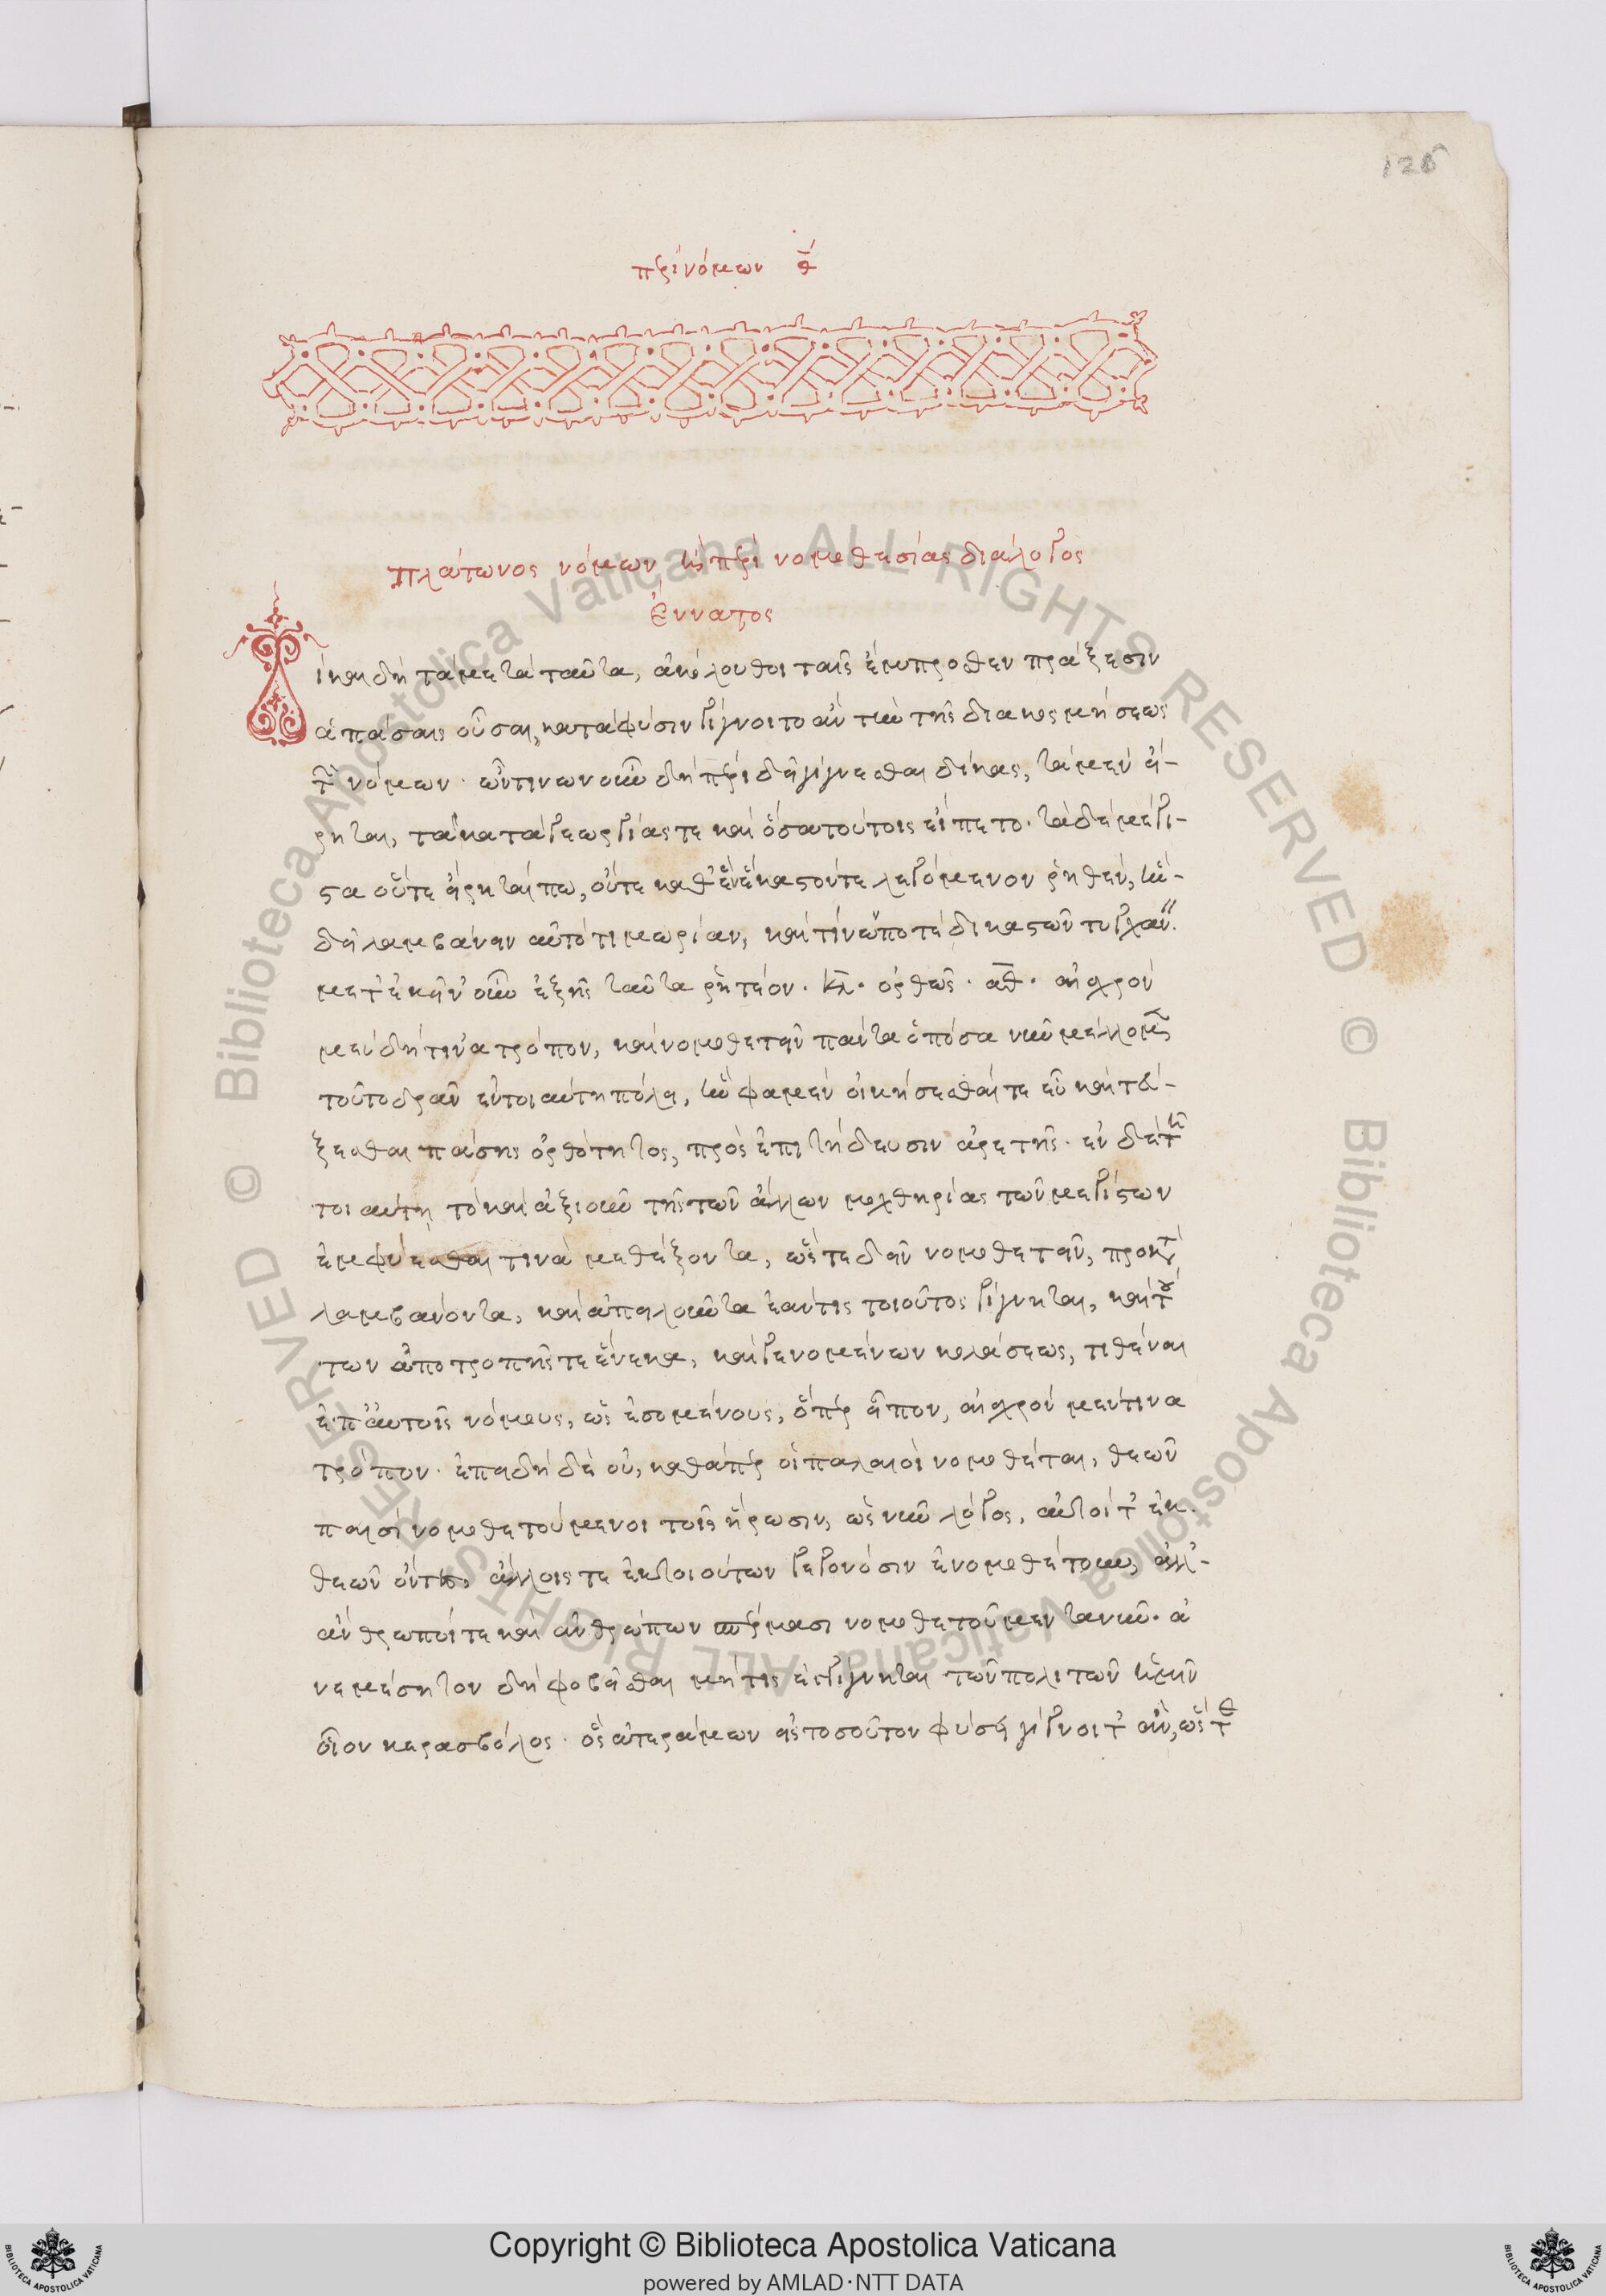 125
περὶ νόμων θ̄
Πλάτωνος νόμων, ἢ περὶ νομοθεσίας διάλογος
ἔννατος
Δίκαι δὴ τὰ μετὰ ταῦτα, ἀκόλουθοι ταῖς ἔμπροσθεν πράξεσιν
ἁπάσαις οὖσαι, κατὰ φύσιν γίγνοιτο ἂν τὴν τῆς διακοσμήσεως
τῶν νόμων. ὧντινων οὖν δὴ πέρι δεῖ γίγνεσθαι δίκας, τὰ μὲν εἴ-
ρηται, τὰ κατὰ γεωργίας τε καὶ ὅσα τούτοις εἵπετο. τὰ δὲ μέγι-
στα οὔτε εἴρηταί πω, οὔτε καθ' ἓν ἕκαστόν τε λεγόμενον ῥηθὲν, ἣν
δεῖ λαμβάνειν αὐτὸ τιμωρίαν, καὶ τίνων ποτὲ δικαστῶν τυγχάνειν.
μετ' ἐκεῖν' οὖν ἑξῆς ταῦτα ῥητέον. κλ. ὀρθῶς. αθ. αἰσχρὸν
μὲν δή τινα τρόπον, καὶ νομοθετεῖν πάντα ὁπόσα νῦν μέλλομεν
τοῦτο δρᾶν ἐν τοιαύτῃ πόλει, ἣν φαμὲν οἰκήσεσθαί τε εὖ καὶ τεύ-
ξεσθαι πάσης ὀρθότητος, πρὸς ἐπιτήδευσιν ἀρετῆς. ἐν δὲ τῇ
τοιαύτῃ τὸ καὶ ἀξιοῦν τῆς τῶν ἄλλων μοχθηρίας τῶν μεγίστων
ἐμφύεσθαι τινὰ μεθέξοντα, ὥστε δεῖν νομοθετεῖν, προκατα
λαμβάνοντα, καὶ ἀπειλοῦντα ἐάν τις τοιοῦτος γίγνηται, καὶ τού
των ἀποτροπῆς τε ἕνεκα, καὶ γενομένων κολάσεως, τιθέναι
ἐπ' αὐτοῖς νόμους, ὡς ἐσομένους, ὅπερ εἶπον, αἰσχρὸν μέν τινα
τρόπον. ἐπειδὴ δὲ οὐ, καθάπερ οἱ παλαιοὶ νομοθέται, θεῶν
παισὶ νομοθετούμενοι τοῖς ἥρωσιν, ὡς νῦν λόγος, αὐτοί τ' ἐκ
θεῶν ὄντες, ἄλλοις τε ἐκ τοιούτων γεγονόσιν ἐνομοθέτουν, ἀλλ'
ἄνθρωποί τε καὶ ἀνθρώπων σπέρμασι νομοθετοῦμεν τανῦν. ἀ
νεμέσητον δὴ φοβεῖσθαι μή τις ἐγγίγνηται τῶν πολιτῶν ἡμῖν
οἷον κερασβόλος. ὃς ἀτεράμων εἰς τοσοῦτον φύσει γίγνοιτ' ἂν, ὥστε
Copyright © Biblioteca Apostolica Vaticana
powered by AMLAD·NTT DATA